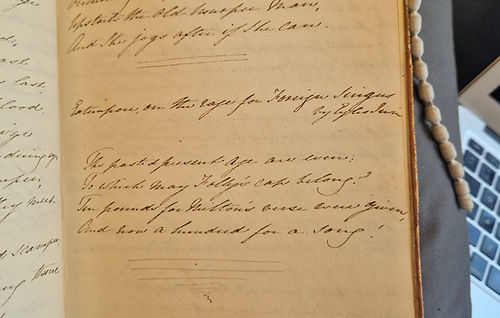 Upstarts the Old Usurper Man,
And She jogs after if she can.
Extempore, on the rage for Foreign Singers
by Eyles Irwin
The past & present age are even;
To which may Folly's caps belong?
Ten pounds for Milton's verse were given,
And now a hundred for a Song!
last
blood.